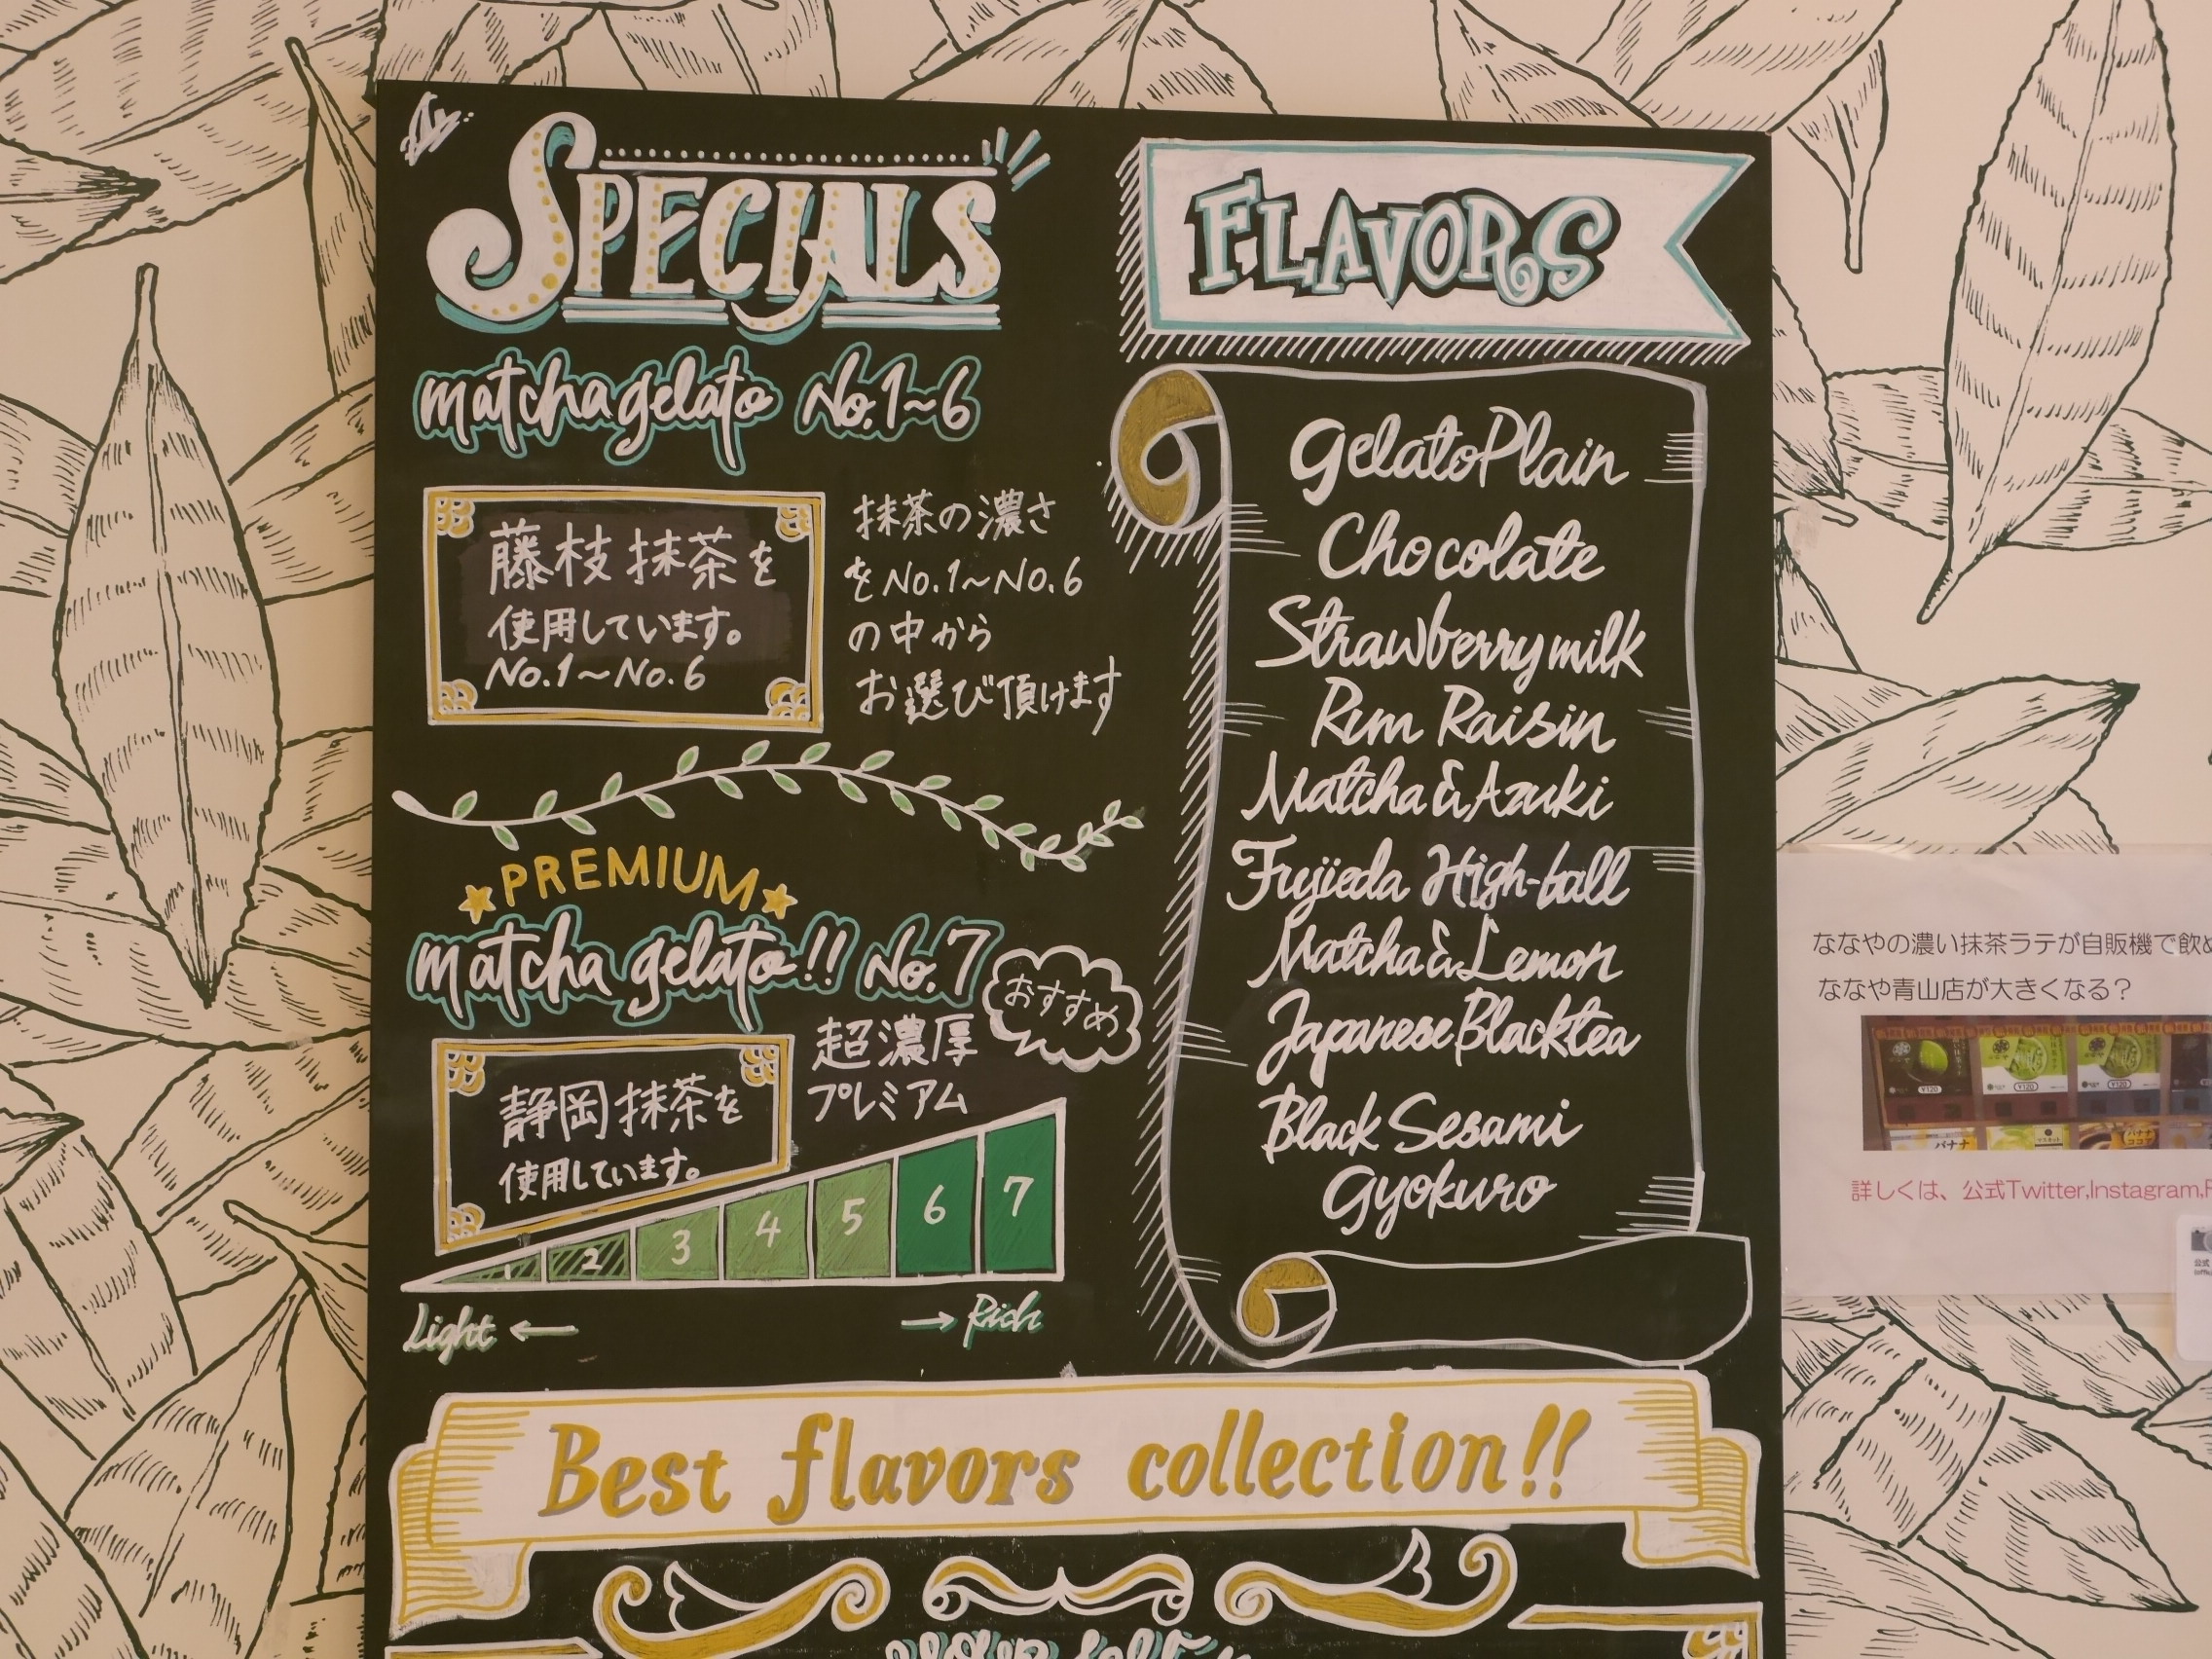 SPECIALS
matcha gelato No.1~6
藤枝抹茶を
使用しています。
No.1~No.6
抹茶の濃さ
をNo.1~No.6
の中から
お選び頂けます
PREMIUM
matcha gelato!! No.7
おすすめ
超濃厚
プレミアム
静岡抹茶を
使用しています。
1 2 3 4 5 6 7
Light ← → Rich
FLAVORS
Gelato Plain
Chocolate
Strawberry milk
Rum Raisin
Matcha & Azuki
Fujieda High-ball
Matcha & Lemon
Japanese Blacktea
Black Sesami
Gyokuro
Best flavors collection!!
ななやの濃い抹茶ラテが自販機で飲め
ななや青山店が大きくなる？
¥120
¥120
¥120
バナナ
バナナ
ココア
詳しくは、公式Twitter,Instagram,F
公式